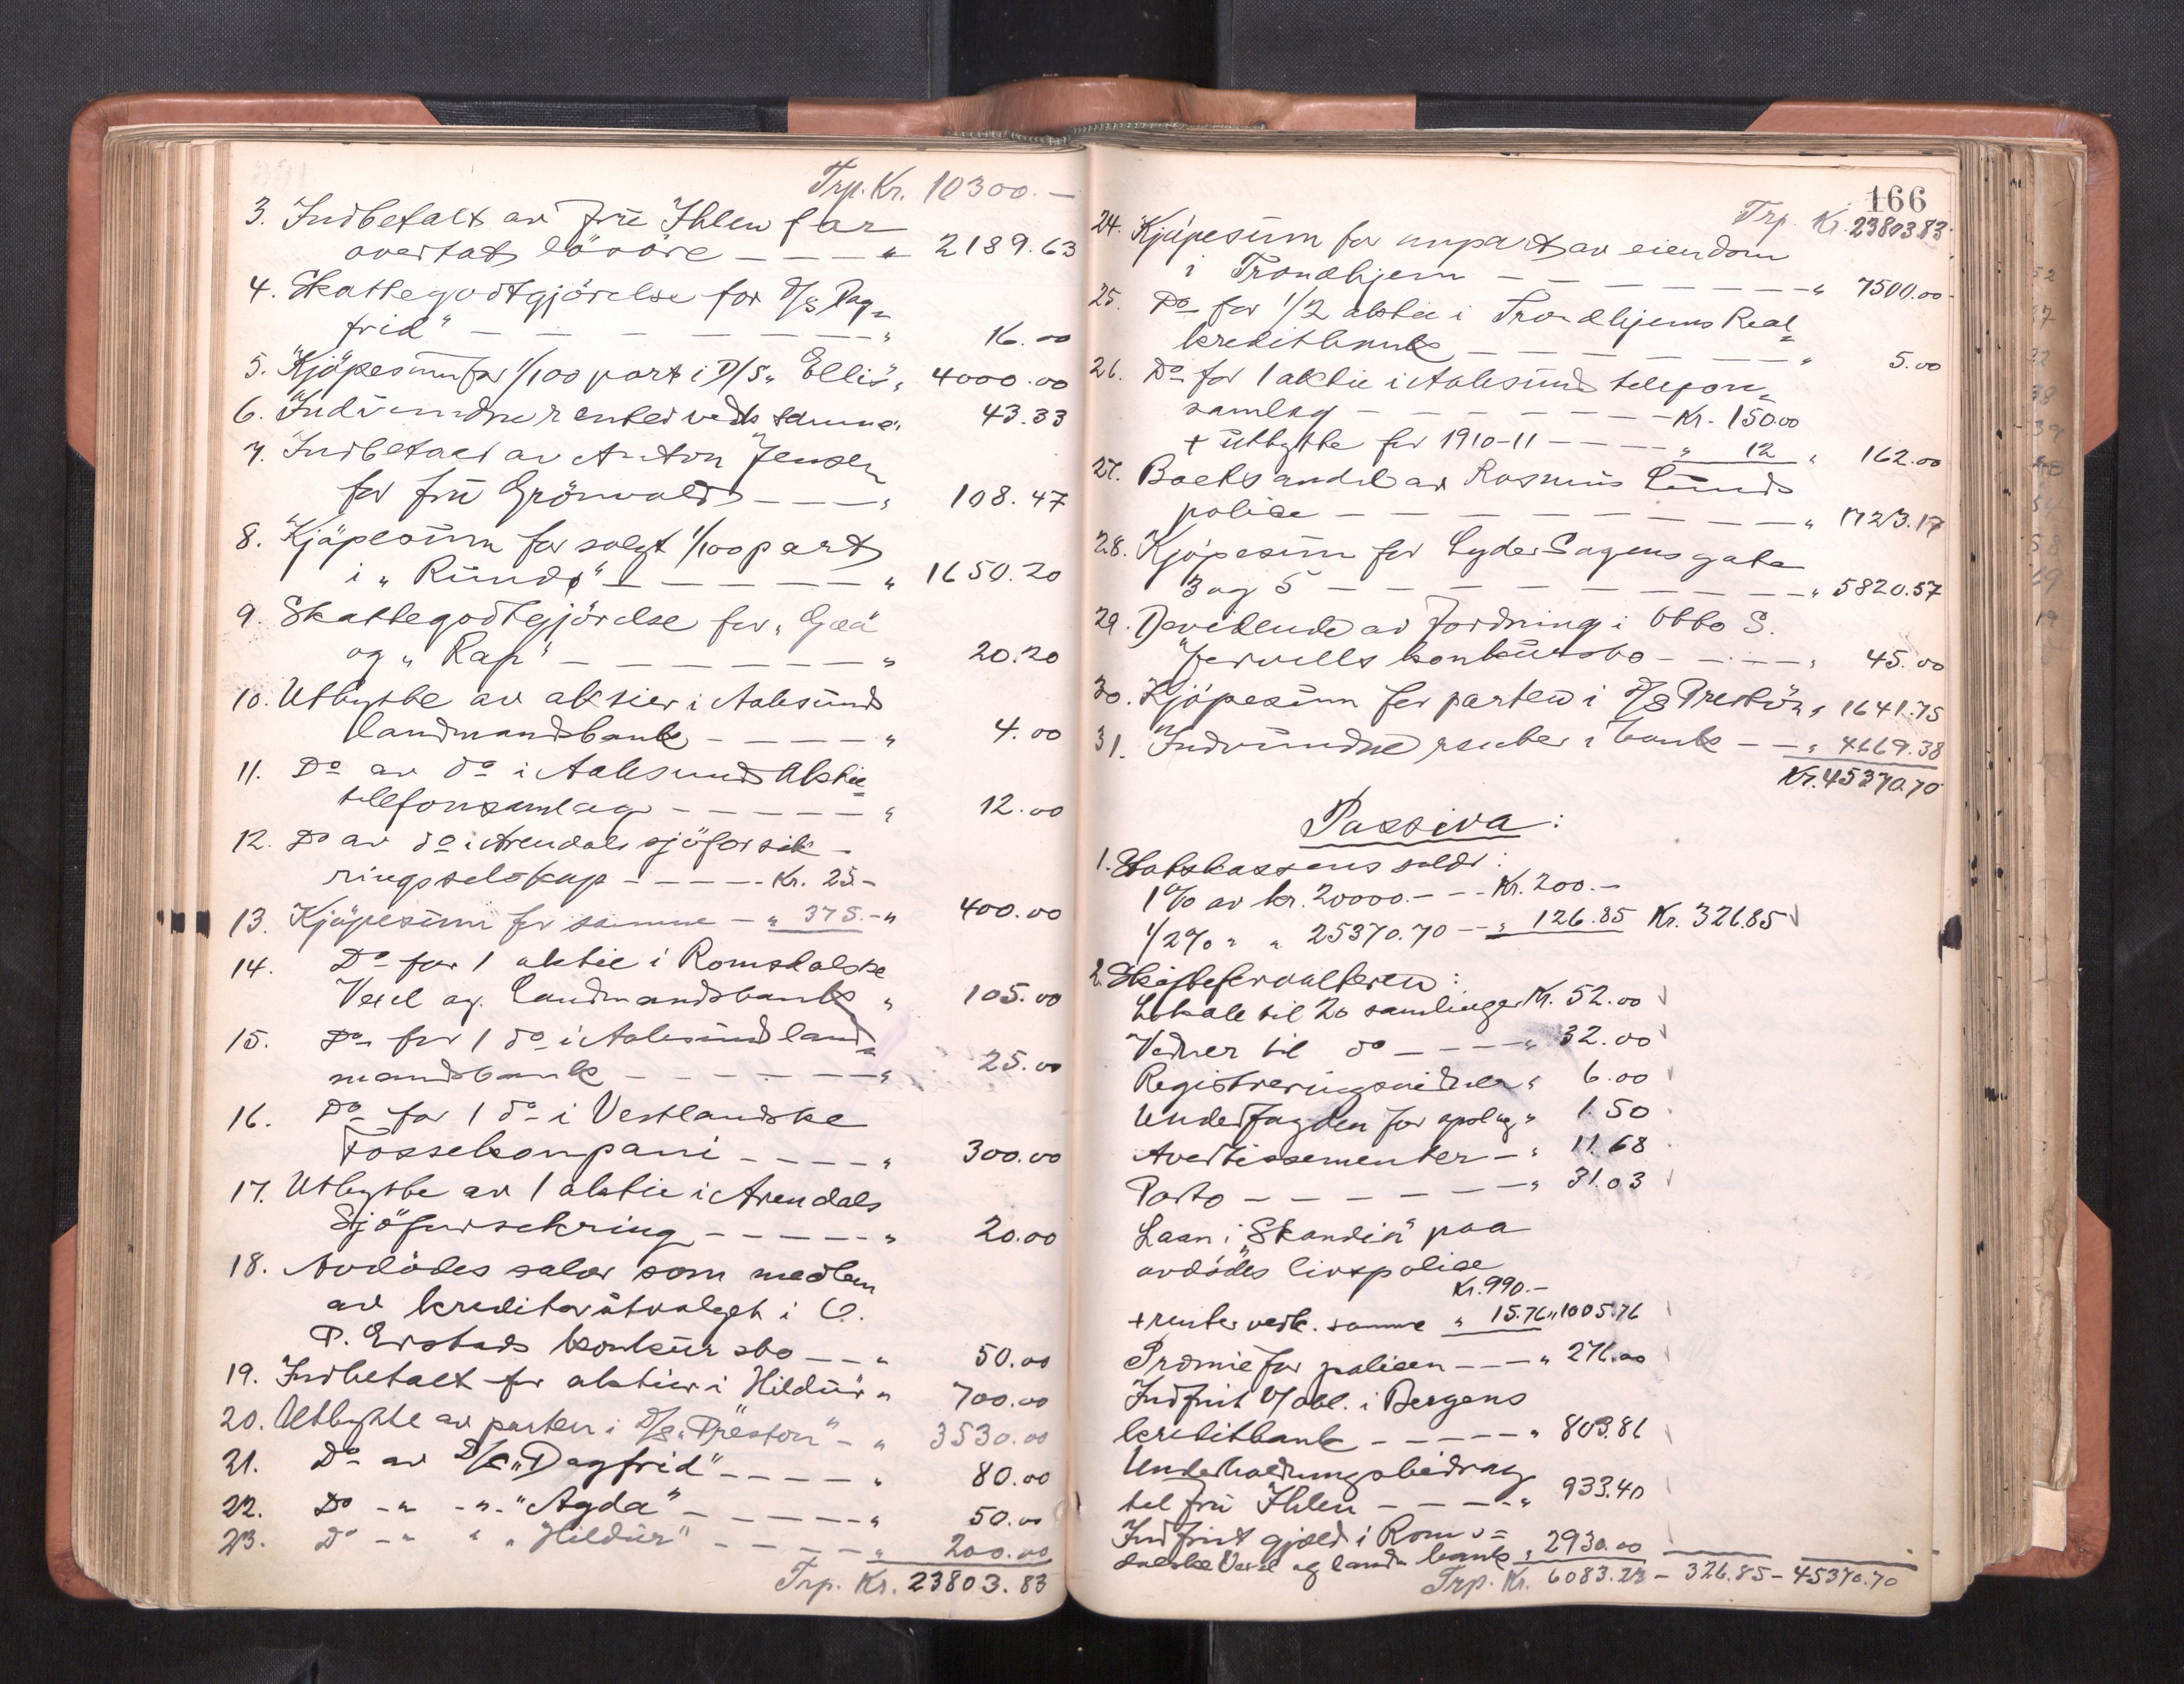 Trp. Kr. 10300.—
3. Indbetalt av fru Ihlen for
overtat lösöre — — — " 2189.63
4. Skattegodtgjörelse for D/S "Dag-
frid" — — — — — — " 16.00
5. Kjöpesum for 1/100 part i D/S "Ellis" " 4000.00
6. Indvundne renter vedk. samme " 43.33
7. Indbetalt av Anton Jensen
for fru Grönvold — — — " 108.47
8. Kjöpesum for solgt 1/100 part
i "Rundö" — — — — — " 1650.20
9. Skattegodtgjörelse for "Gæa"
og "Rap" — — — — — — " 20.20
10. Utbytte av aktier i Aalesunds
landmandsbank — — — — " 4.00
11. Do av do i Aalesunds Aktie-
telefonsamlag — — — — — " 12.00
12. Do av do i Arendals sjöforsik-
ringsselskap — — — — Kr. 25.—
13. Kjöpesum for samme — " 375.— " 400.00
14. Do for 1 aktie i Romsdalske
Vexel og Landmandsbank " 105.00
15. Do for 1 do i Aalesund land-
mandsbank — — — — — — " 25.00
16. Do for 1 do i Vestlandske
Fossekompani — — — — " 300.00
17. Utbytte av 1 aktie i Arendals
Sjöforsikring — — — — — " 20.00
18. Avdödes salær som medlem
av kreditorutvalget i O.
P. Erstads konkursbo — — " 50.00
19. Indbetalt for aktier i Hildur " 700.00
20. Utbytte av parten i D/S "Preston" — " 3530.00
21. Do av D/S "Dagfrid" — — — — " 80.00
22. Do — " — " — "Agda" — — — — — " 50.00
23. Do — " " "Hildur" — — — — " 200.00
Trp. Kr. 23803.83
166
Trp. Kr. 23803.83
24. Kjöpesum for anpart av eiendom
i Trondhjem — — — — — — — " 7500.00
25. Do for 1/2 aktie i Trondhjems Real-
kreditbank — — — — — — " 5.00
26. Do for 1 aktie i Aalesunds telefon-
samlag — — — — — — Kr. 150.00
+ utbytte for 1910-11 — — — — " 12 " 162.00
27. Boets andel av Rasmus Lunds
police — — — — — — — — " 1723.17
28. Kjöpesum for Lyder Sagens gate
3 og 5 — — — — — — — — " 5820.57
29. Devidende av fordring i Otto S.
Jervells konkursbo — — — — " 45.00
30. Kjöpesum for parten i D/S "Preston" " 1641.75
31. Indvundne renter i bank — — " 4669.38
Kr. 45370.70
Passiva:
1. Statskassens saldo:
1% av kr. 20000.— — — Kr. 200.—
1/2% " " 25370.70 — " 126.85 Kr. 326.85
2. Skifteforvalteren:
Lokale til 26 samlinger Kr. 52.00
Vidner til do — — — — " 32.00
Registreringsvidner " 6.00
Underfogden for opslag " 1.50
Avertissementer — " 11.68
Porto — — — — — — " 31.03
Laan i "Skandia" paa
avdödes livspolice
Kr. 990.—
+ renter vedk. samme " 15.76 " 1005.76
Præmie for policen — — — " 276.00
Indfriet v/obl. i Bergens
kreditbank — — — — — " 803.86
Underholdningsbidrag
til fru Ihlen — — — — " 933.40
Indfriet gjæld i Roms-
dalske Vexel og landm. bank " 2930.00
Trp. Kr. 6083.23 — 326.85 — 45370.70